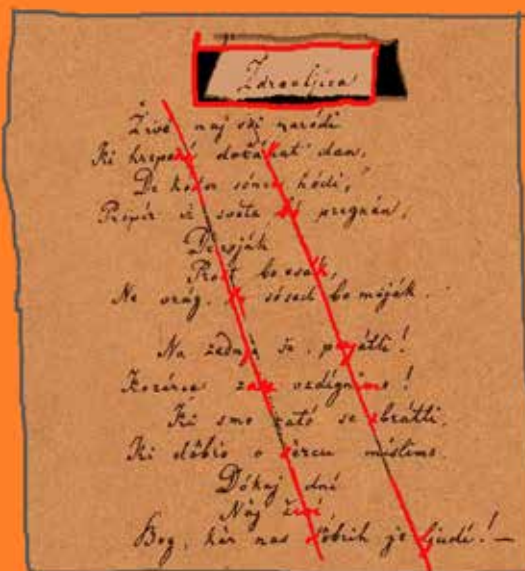 Zdravljica
Živé naj vsi naródi
Ki hrepené dočákat dan,
De koder sónce hódi,
Prepir iz svéta bó pregnán,
De rojak
Prost bo vsak,
Ne vrag, le sósed bo meják.
Na zadnje še, prijátli!
Kozárce zase vzdignimo!
Ki smo zató se zbrátli,
Ki dôbro v sèrcu mislimo.
Dókaj dni
Náj živí
Bog, kàr nas dôbrih je ljudi! —